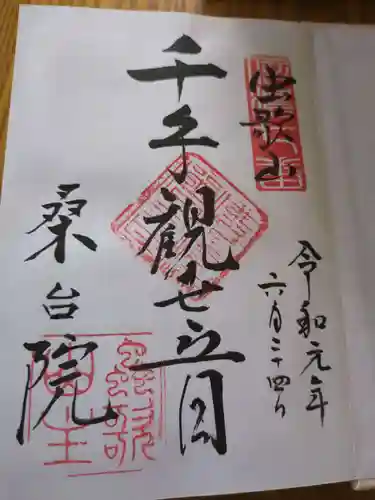 虫歌山
千手觀世音
桑台院
令和元年
六月二十四日